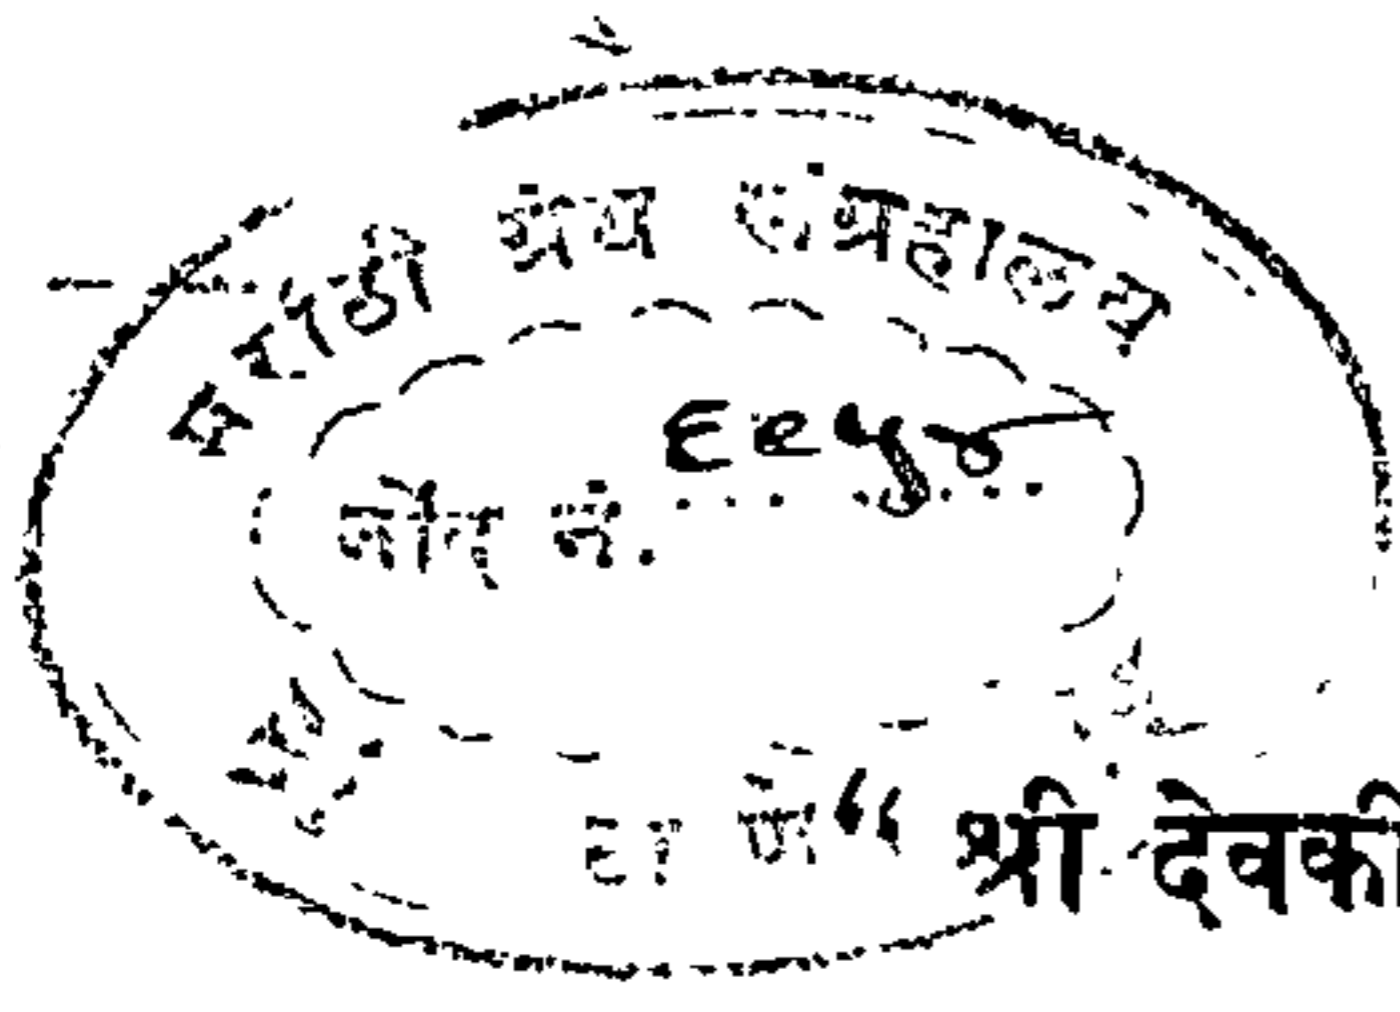 मराठी ग्रंथ संग्रहालय
नोंद नं.
ठाणे
“ श्री देवकी